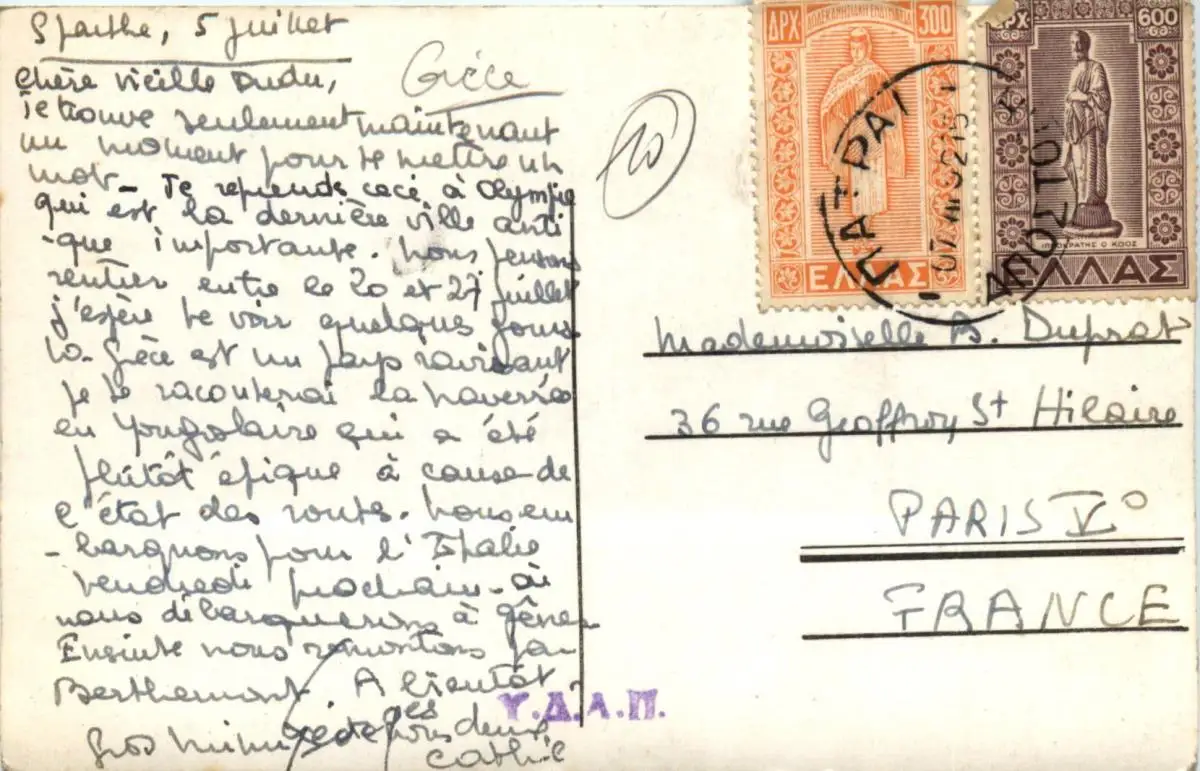 Sparthe, 5 juillet
Grèce
Chère vieille Dudu,
Je trouve seulement maintenant
un moment pour te mettre un
mot - Je reprends ceci à Olympie
qui est la dernière ville anti
-que importante. Nous pensons
rentrer entre le 20 et 27 juillet
j'espère te voir quelques jours
La Grèce est un pays ravissant
je te raconterai la traversée
en Yougoslavie qui a été
plutôt épique à cause de
l'état des routes. Nous em
-barquons pour l'Italie
vendredi prochain - où
nous débarquerons à Gênes
Ensuite nous remontons par
Berthemont. A bientôt
Gros
deux
Cathie
20
ΔΡΧ
ΔΩΔΕΚΑΝΗΣΙΑΚΗ
300
ΕΛΛΑΣ
ΔΡΧ
600
ΙΠΠΟΚΡΑΤΗΣ Ο ΚΩΟΣ
ΕΛΛΑΣ
ΠΑΤΡΑΙ
Mademoiselle B. Duprat
36 rue Geoffroy St Hilaire
PARIS V°
FRANCE
Υ.Δ.Α.Π.